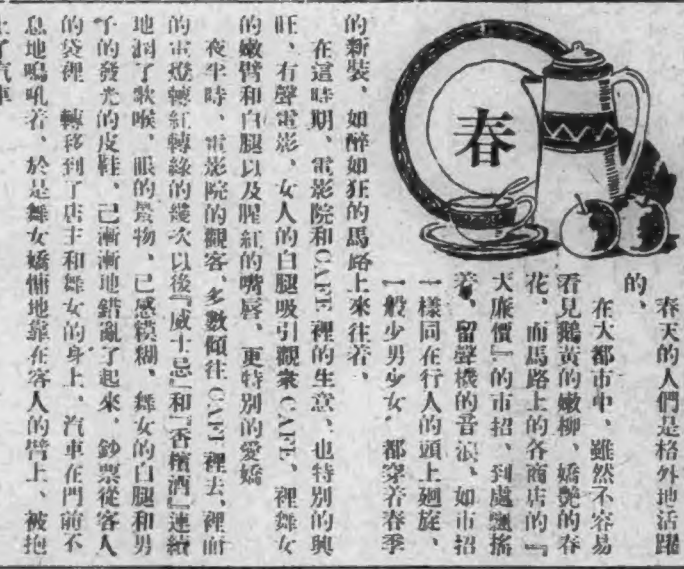 春
春天的人們是格外地活躍
的、
在大都市中、雖然不容易
看見鵝黃的嫩柳、嬌艷的春
花、而馬路上的各商店的『
大廉價』的市招、到處飄搖
着、留聲機的音浪、如市招
一樣同在行人的頭上廻旋、
一般少男少女、都穿着春季
的新裝、如醉如狂的馬路上來往着、
在這時期、電影院和CAFE裡的生意、也特別的興
旺、有聲電影、女人的白腿吸引觀衆CAFE、裡舞女
的嫩臂和白腿以及腥紅的嘴唇、更特別的愛嬌
夜半時、電影院的觀客、多數傾往CAFE裡去、裡面
的電燈轉紅轉綠的幾次以後『威士忌』和『香檳酒』連續
地潤了歌喉、眼的景物、已感糢糊、舞女的白腿和男
子的發光的皮鞋、已漸漸地錯亂了起來、鈔票從客人
的袋裡 轉移到了店主和舞女的身上、汽車在門前不
息地鳴吼着、於是舞女嬌慵地靠在客人的臂上、被抱
上了汽車